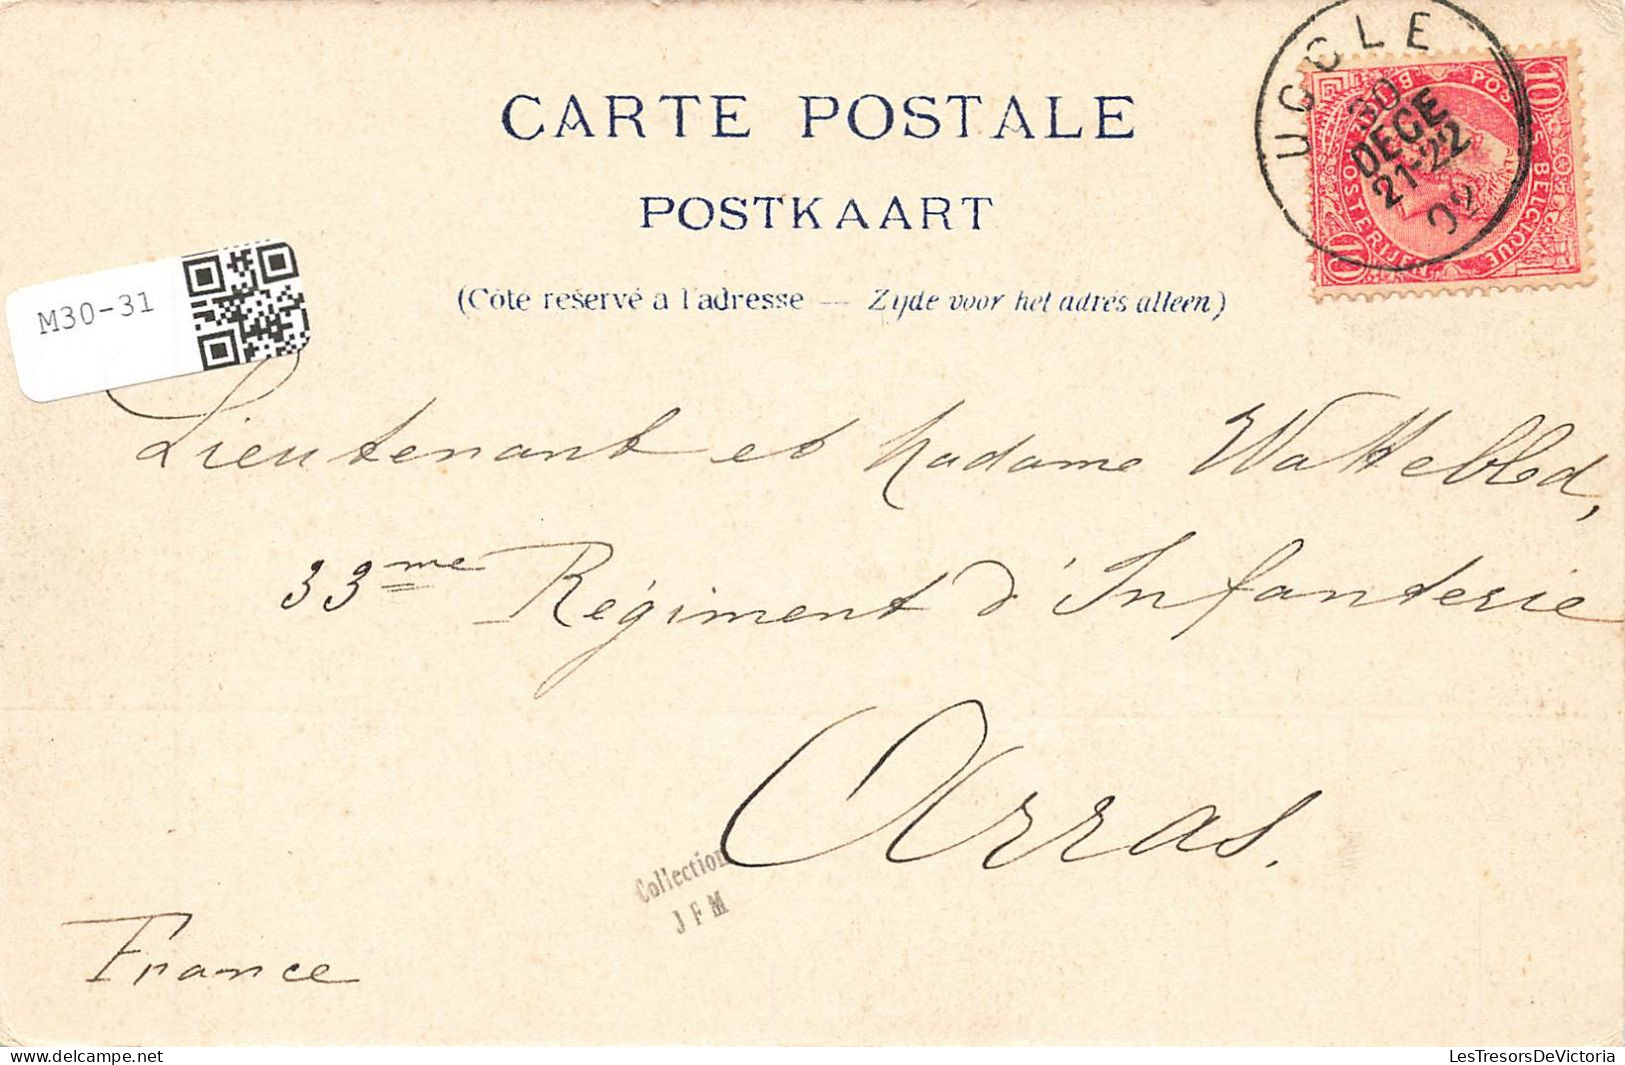 CARTE POSTALE
POSTKAART
(Côté réservé à l'adresse — Zijde voor het adres alleen)
UCCLE
30
DECE
21-22
02
10 BELGIQUE POSTERIJEN 10
M30-31
Lieutenant et Madame Wattebled,
33me Régiment d'Infanterie
Arras.
Collection
JFM
France
LesTresorsDeVictoria